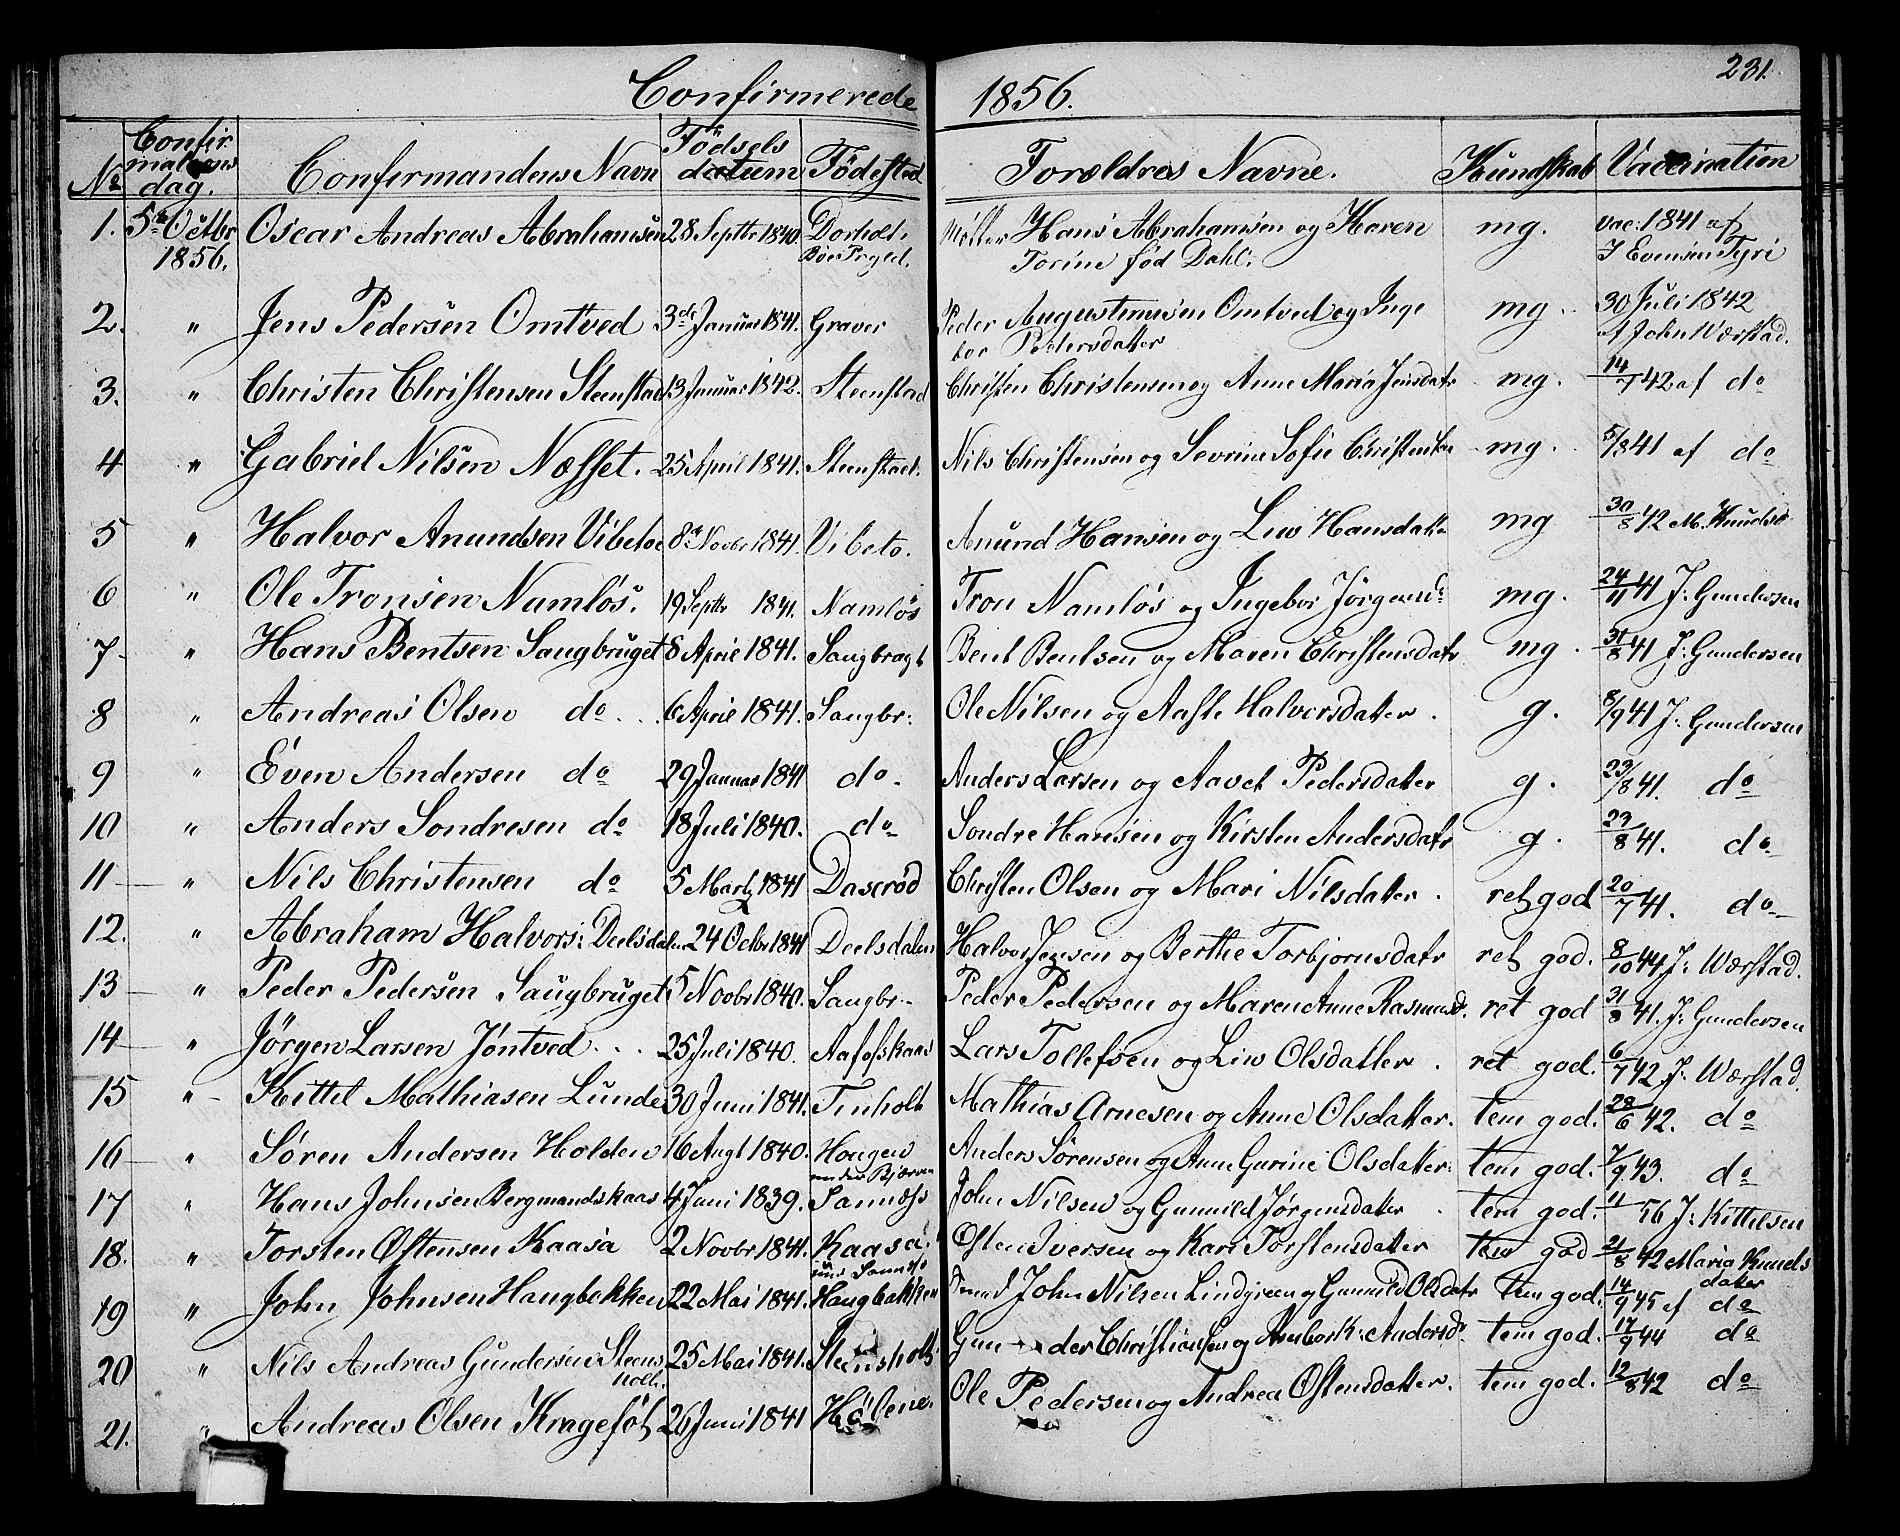 Confirmerede 1856. 231.
No Confirmations dag. Confirmandens Navn Födsels datum Födested Forældres Navne. Kundskab Vaccination
1. 5te Octbr 1856. Oscar Andreas Abrahamsen 28 Septbr 1840. Dorholt. Møller Hans Abrahamsen og Karen Torine föd Dahl. mg. vac: 1841 af J Evensen Tyri
2. " Jens Pedersen Omtved 3de Januar 1841. Graver Peder Augustinusen Omtved og Inge bor Pedersdatter mg. 30 Juli 1842 af John Wærstad.
3. " Christen Christensen Steenstad 13 Januar 1842. Steenstad Christen Christensen og Anne Maria Jensdatr mg. 14/7 42 af do
4 " Gabriel Nilsen Næsset. 25 April 1841. Steenstad. Nils Christensen og Sevrine Sofie mg. 5/8 41 af do
5 " Halvor Anundsen Vibeto 8de Novbr 1841. Vibeto. Anund Hansen og Liw Hansdatr mg 30/8 42 M. Knudsd
6 " Ole Tronsen Namlös. 19 Septbr 1841. Namlös Tron Namlös og Ingebor Jørgensd mg. 24/11 41 J. Gundersen
7 " Hans Bentsen Saugbruget 8 April 1841. Saugbrugt Bent Bentsen og Maren Christensdatr mg. 31/8 41 J. Gundersen
8 " Andreas Olsen do 6 April 1841. Saugbr: Ole Nilsen og Aaste Halvorsdatter. g. 8/9 41 J. Gundersen
9 " Even Andersen do 29 Januar 1841 do Anders Larsen og Aavet Pedersdatter g. 23/8 41. do
10 " Anders Sondresen do 18 Juli 1840. do Sondre Hansen og Kirsten Andersdatr g. 23/8 41. do
11 " Nils Christensen do 5 Marts 1841 Daserød Christen Olsen og Mari Nilsdatter. ret god 20/7 41. do
12. " Abraham Halvors: Deelsdalen 24 Octbr 1841 Deelsdalen Halvor Jensen og Berthe Torbjornsdatr ret god. 8/10 44 J. Wærstad.
13 " Peder Pedersen Saugbruget 5 Novbr 1840. Saugbr: Peder Pedersen og Maren Anne Rasmusd. ret god 31/8 41. J. Gundersen
14 " Jørgen Larsen Jøntved 25 Juli 1840. Aafoskaas Lars Tollefsen og Liw Olsdatter. ret god. 6/7 42 J. Wærstad.
15 " Kittil Mathiasen Lunde 30 Juni 1841. Tinholt Mathias Arnesen og Anne Olsdatter. tem god. 28/6 42. do
16 " Søren Andersen Holden 16 Augt 1840. Haugen under Bjærven Anders Sørensen og Anne Gurine Olsdatter. tem god. 7/9 43. do
17 " Hans Johnsen Bergmandskaas 4 Juni 1839. Sannæs John Nilsen og Gunnild Jørgensdatter. tem god. 56 J. Kittilsen
18. " Torsten Østensen Kaasa 2 Novbr 1841. Kaasa. und Sannæs Østen Iversen og Kari Torstensdatter tem god 21/8 42 Maria Knuds datter
19 " John Johnsen Haugbakken 22 Mai 1841. Haugbakken Smed John Nilsen Lindgreen og Gunnild Olsdatr tem god. 14/9 45 af do
20 " Nils Andreas Gundersen Steens holt. 25 Mai 1841. Steensholt Gun der Christiansen og Anbork: Andersdr tem god. 17/9 44 do
21. " Andreas Olsen Krageföt 26 Juni 1841 Ole Pedersen og Andrea Østensdatter. tem god. 12/8 42 do